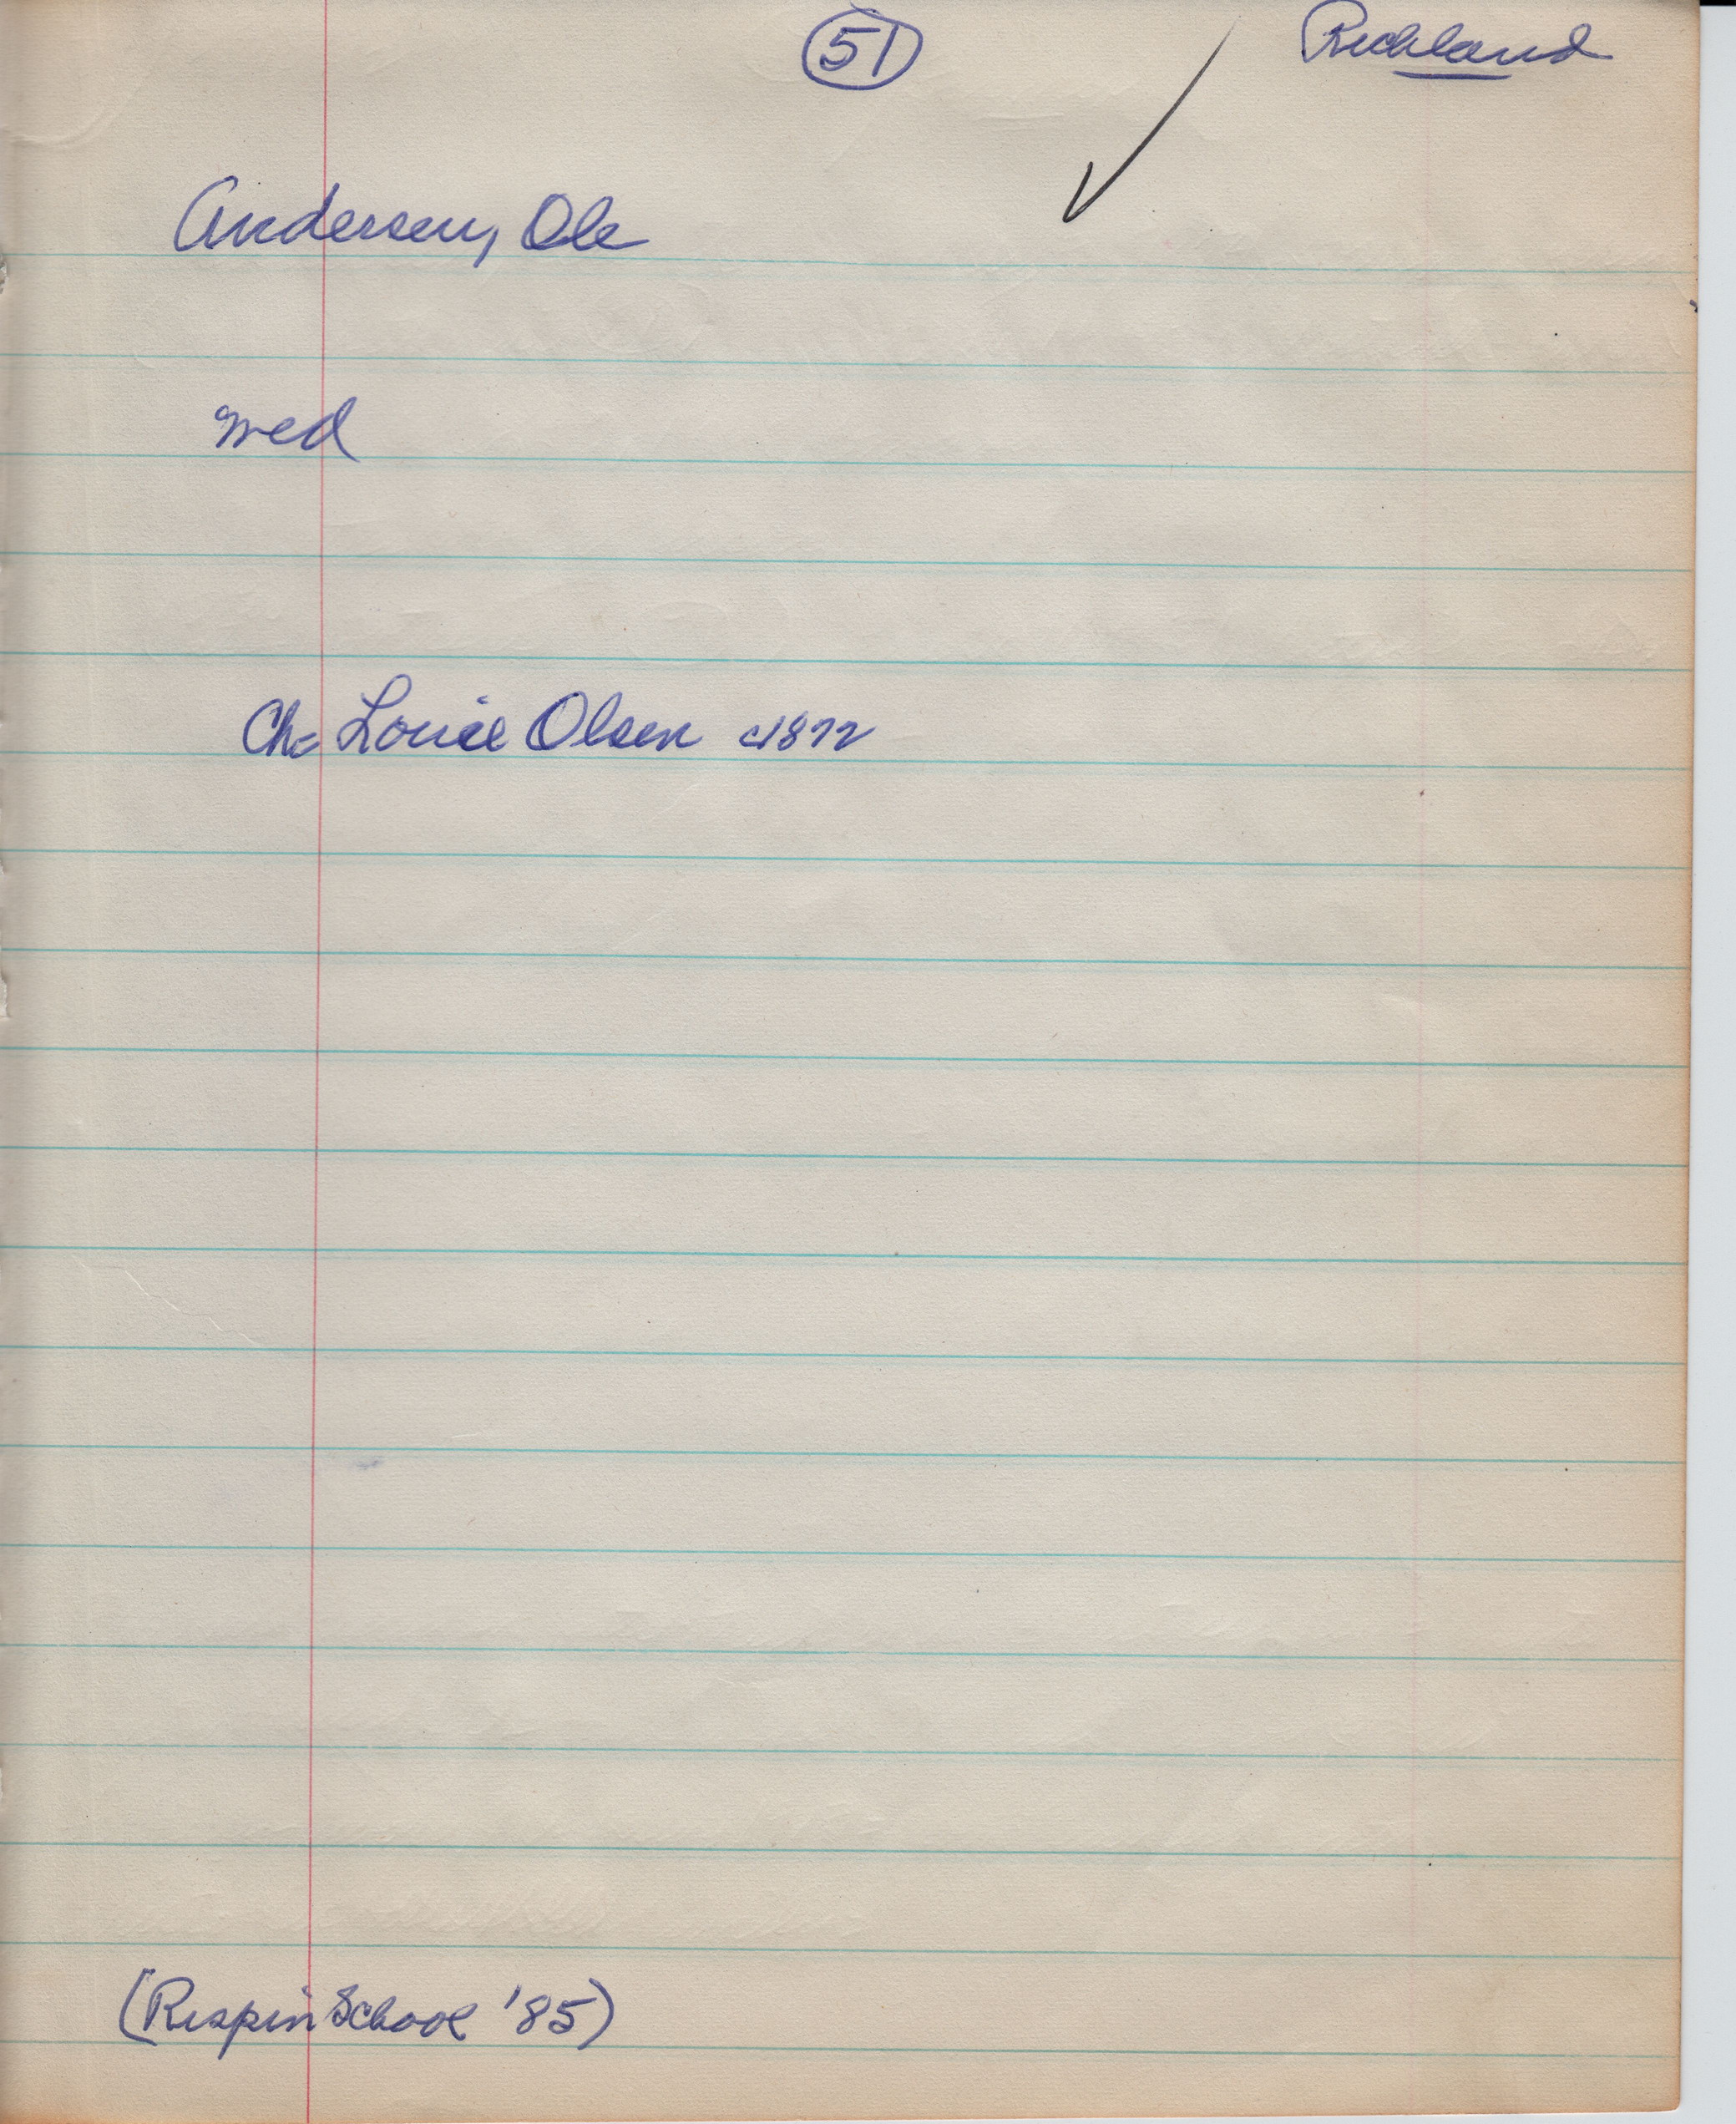 51 Richland
Andersen, Ole
med
Ch= Louise Olsen c1872
(Rispin School '85)